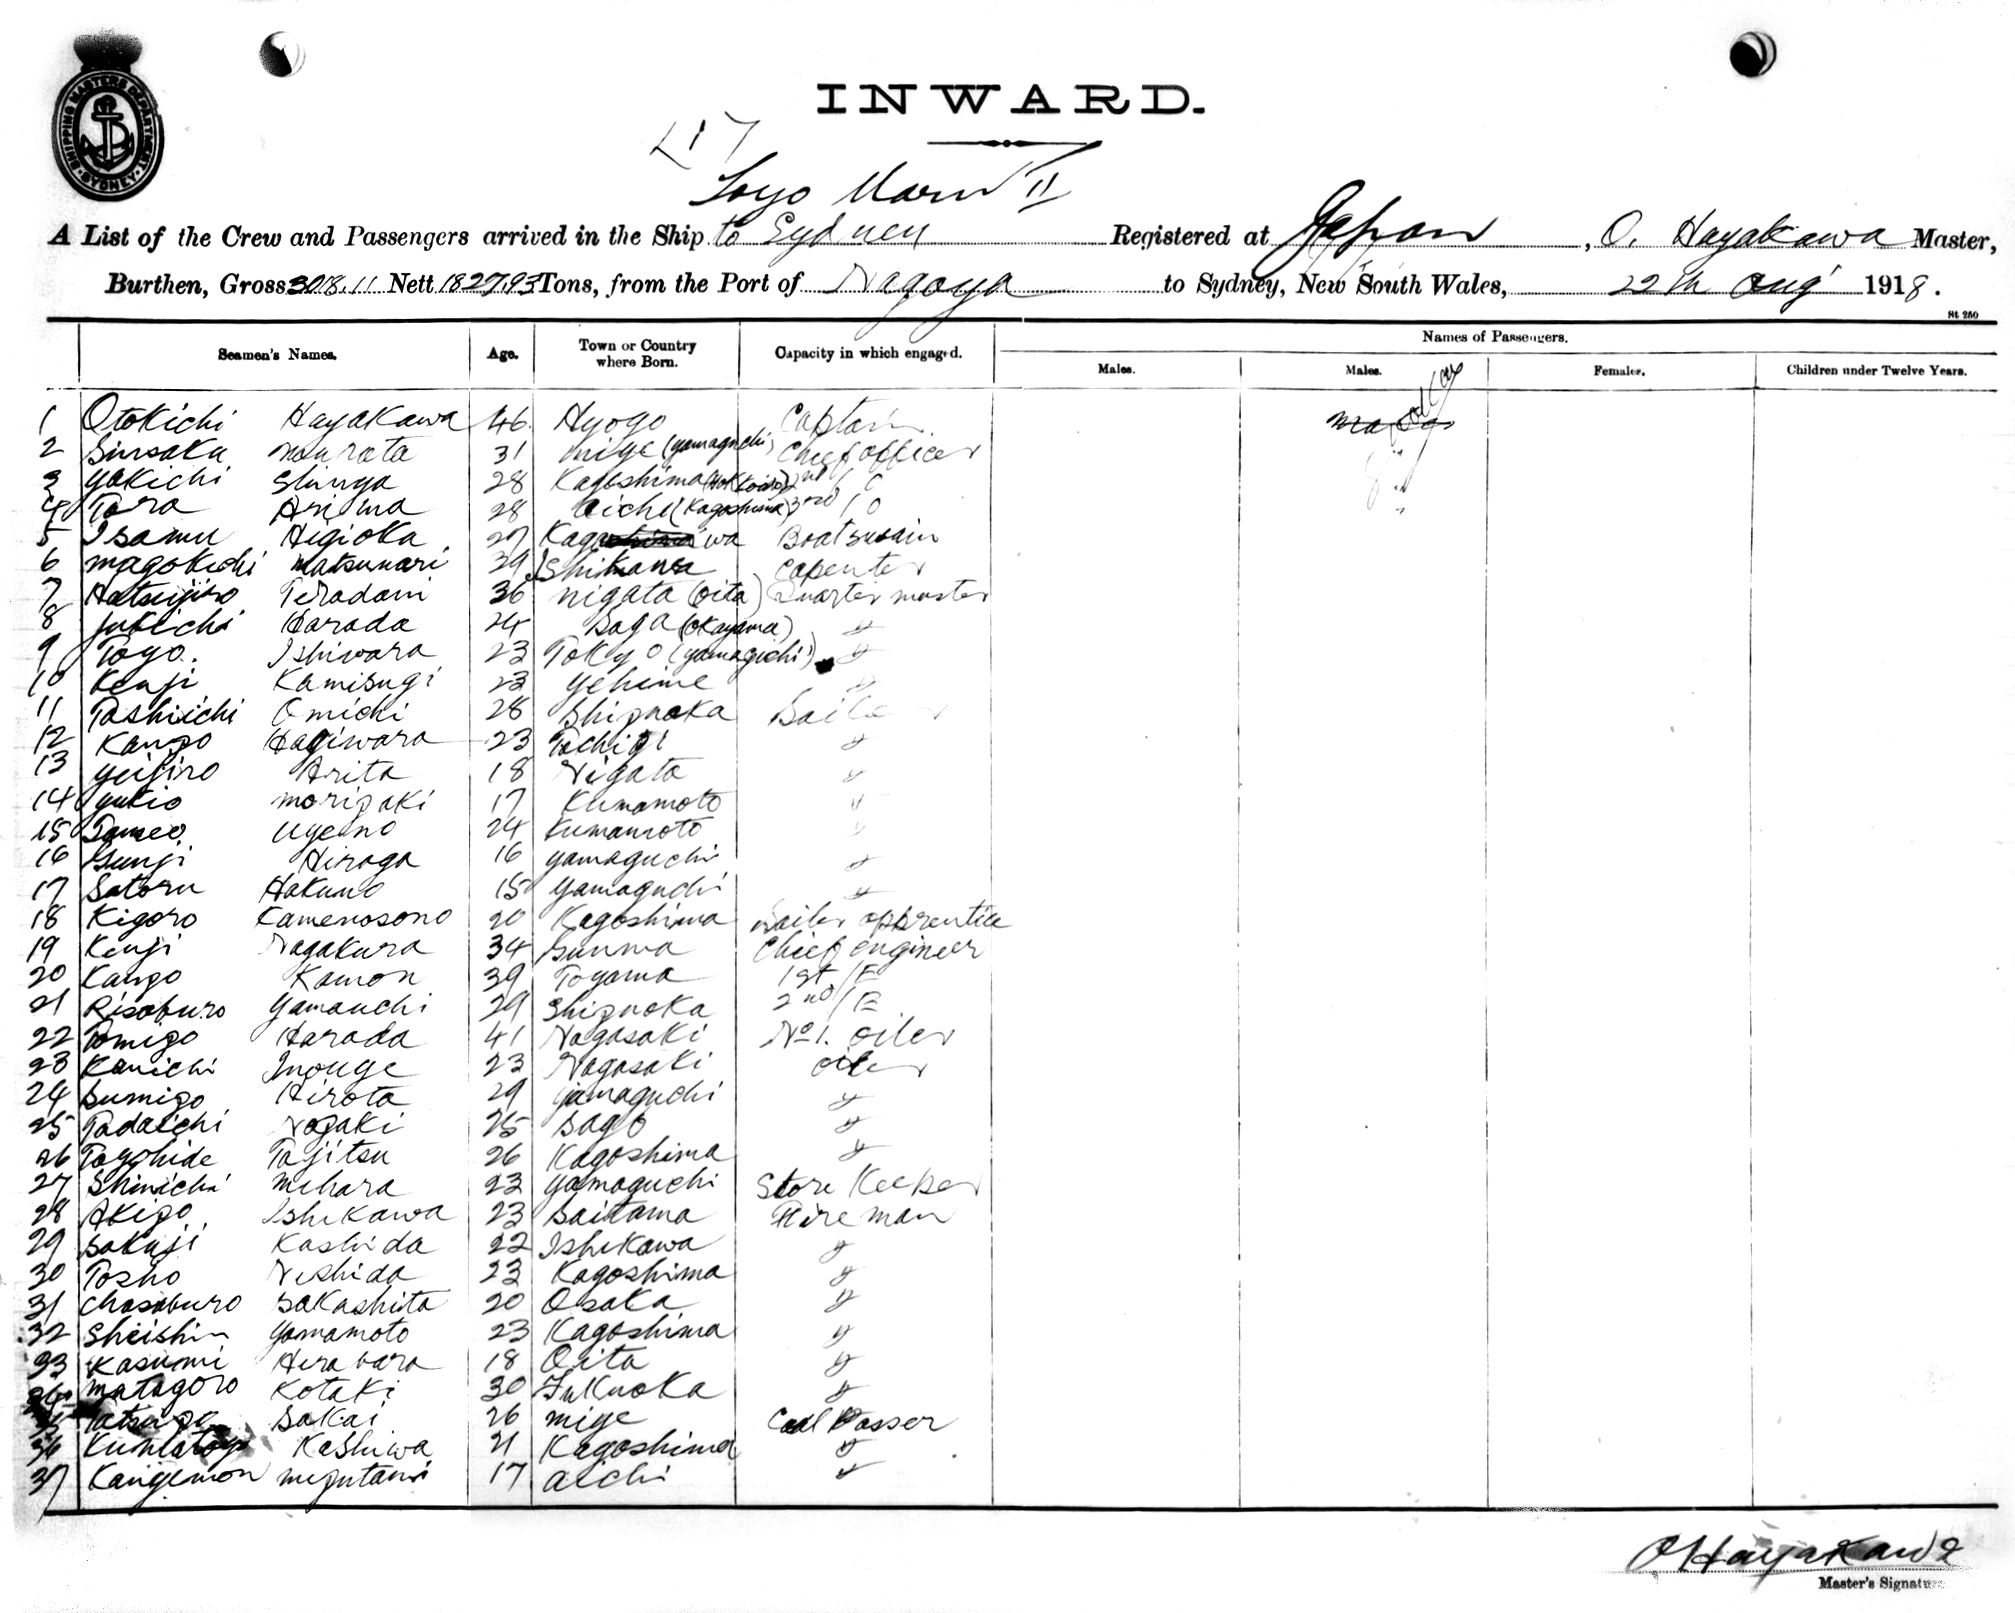 INWARD.
SHIPPING MASTERS DEPARTMENT SYDNEY
Toyo Maru II
A List of the Crew and Passengers arrived in the Ship to Sydney Registered at Japan, O. Hayakawa Master,
Burthen, Gross 3018.11 Nett 1827.93 Tons, from the Port of Nagoya to Sydney, New South Wales, 22th Aug 1918.
St 250
Seamen's Names. Age. Town or Country where Born. Capacity in which engaged. Names of Passengers.
Males. Males. Females. Children under Twelve Years.
1 Otokichi Hayakawa 46 Hyogo Captain
2 Sinsaku Murata 31 Miye (Yamaguchi) Chief officer
3 Yokichi Shinya 28 Kagoshima 2nd / O
4 Tora Arima 28 Aichi (Kagoshima) 3rd / O
5 Isamu Higioka 27 Kagawa Boatswain
6 Magokichi Matsunari 39 Ishikawa Capenter
7 Hatsujiro Teradani 36 Nigata (Oita) Quarter master
8 Harada 24 Saga (Okayama) "
9 Toyo Ishiwara 23 Tokyo (Yamagichi) "
10 Kenji Kamisugi 23 Yehime "
11 Toshiichi Omichi 28 Shizuoka Sailor
12 Kanzo Hagiwara 23 Tochigi "
13 Yeijiro Arita 18 Nigata "
14 Yukio Morizaki 17 Kumamoto "
15 Tameo Uyeno 24 Kumamoto "
16 Gunji Hiraga 16 Yamaguchi "
17 Satoru Hakuno 15 Yamaguchi "
18 Kigoro Kamenosono 20 Kagoshima Sailor apprentice
19 Kenji Nagakura 34 Gunma Chief engineer
20 Kanzo Kamon 39 Toyama 1st / E
21 Risaburo Yamauchi 29 Shizuoka 2nd / E
22 Tomizo Harada 41 Nagasaki No 1. oiler
23 Kanichi Inouye 23 Nagasaki oiler
24 Sumizo Hirota 29 Yamaguchi "
25 Tadaichi Nozaki 25 Saga "
26 Toyohide Tajitsu 26 Kagoshima "
27 Shinichi Mihara 23 Yamaguchi Store Keeper
28 Akizo Ishikawa 23 Saitama Fire man
29 Sakuji Kashida 22 Ishikawa "
30 Tosho Nishida 23 Kagoshima "
31 Chosaburo Sakashita 20 Osaka "
32 Sheishin Yamamoto 23 Kagoshima "
33 Kasumi Hirabara 18 Oita "
34 Matagoro Kotaki 30 Fukuoka "
35 Sakai 26 Miye Coal Passer
36 Kashiwa 21 Kagoshima "
37 Kangemon Mizutani 17 Aichi "
O Hayakawa
Master's Signature